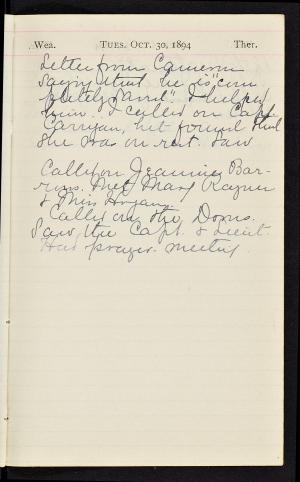 Wea. TUES. OCT. 30, 1894 Ther.
Letter from Cameron
saying that he is "com
pletely saved". I helped
him. I called on Capt
Carryan, but found that
she was on rest. Saw
Called on Jeannie Bar-
rens. Met Mary Rayner
& Miss
Called on the Doms.
Saw the Capt. & Lieut.
Had prayer meeting